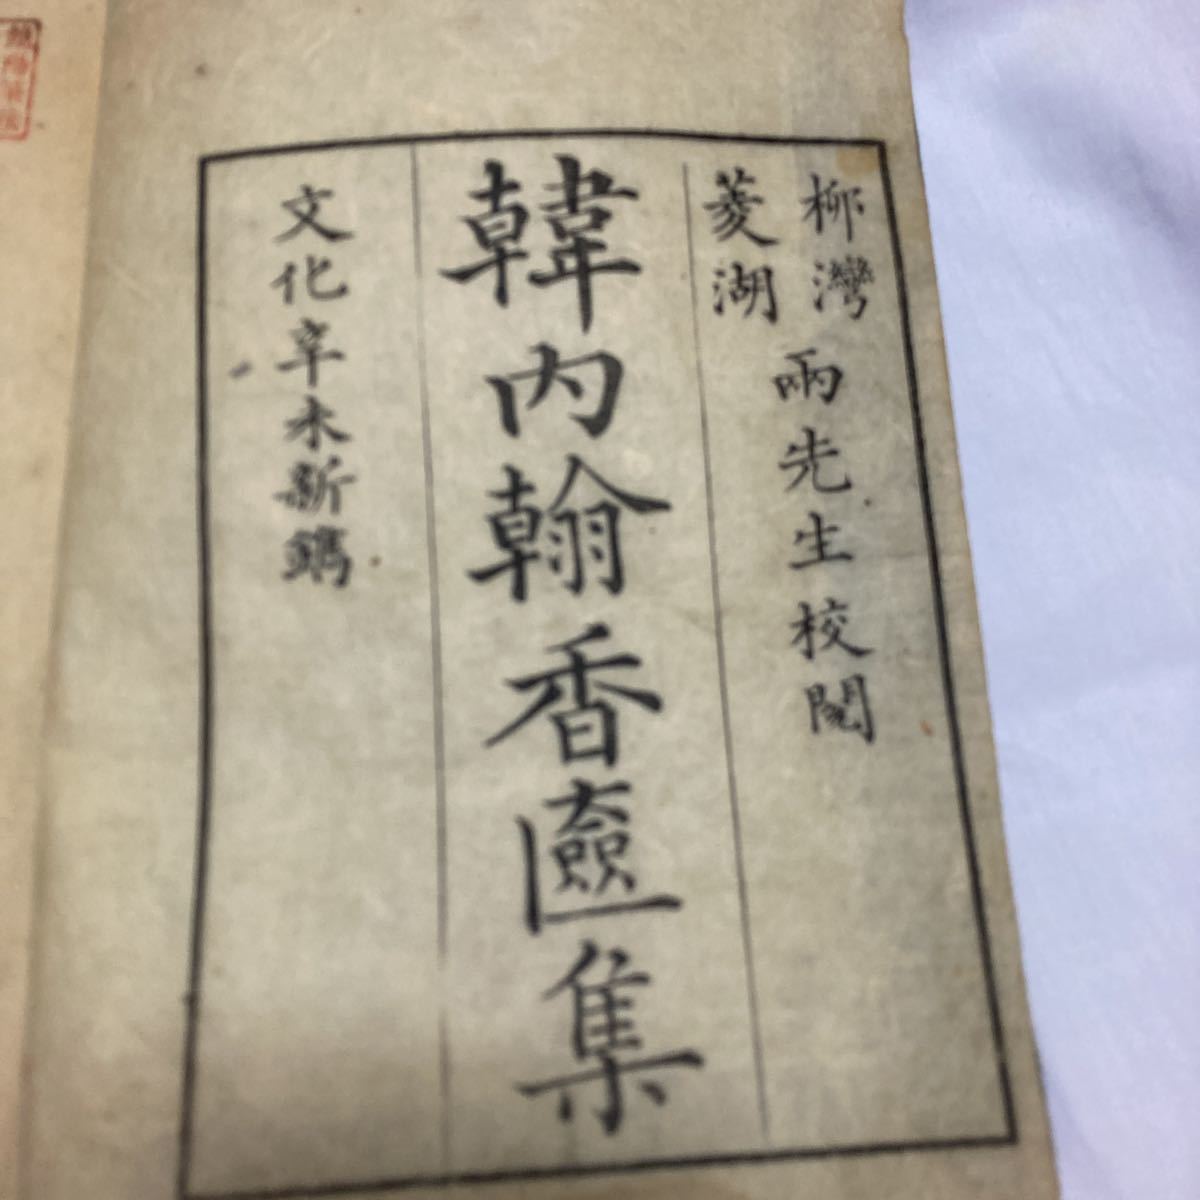 柳灣
菱湖
兩先生校閲
韓内翰香匳集
文化辛未新鐫